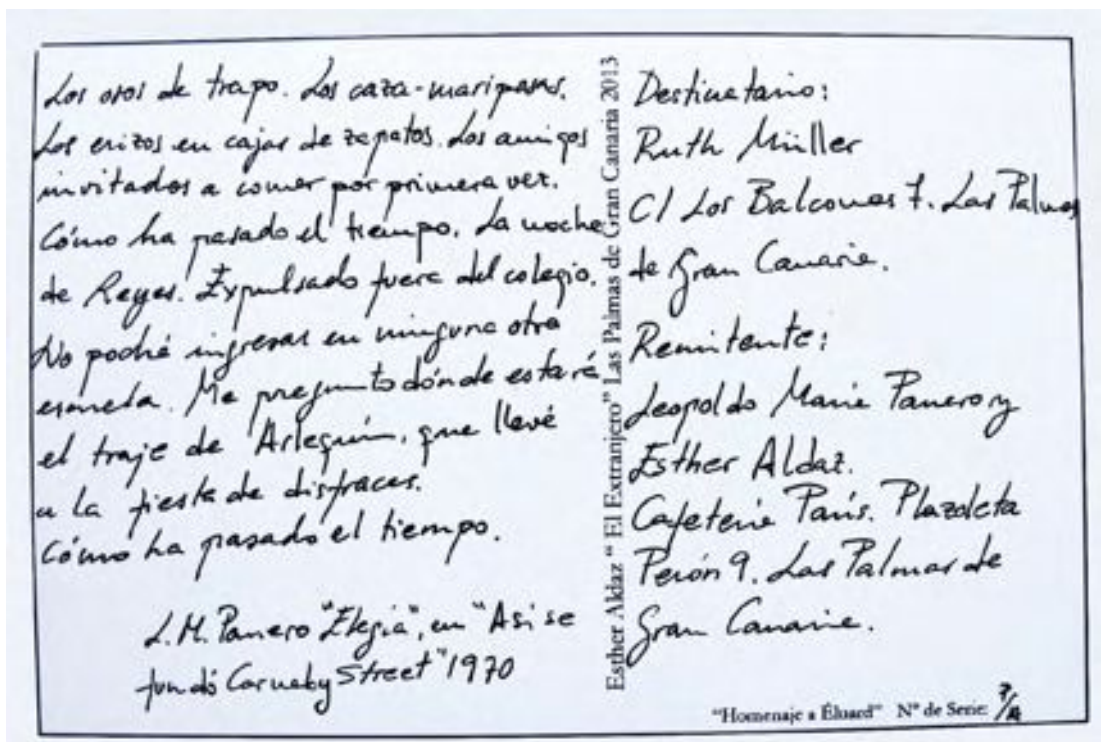 Los osos de trapo. Los caza-mariposas.
Los erizos en cajas de zapatos. Los amigos
invitados a comer por primera vez.
Cómo ha pasado el tiempo. La noche
de Reyes. Expulsado fuera del colegio.
No podré ingresar en ninguna otra
escuela. Me pregunto dónde estará
el traje de Arlequín, que llevé
a la fiesta de disfraces.
Cómo ha pasado el tiempo.
L.M. Panero "Elegía", en "Así se
fundó Carnaby Street" 1970
Esther Aldaz "El Extranjero" Las Palmas de Gran Canaria 2013
Destinatario:
Ruth Müller
C/ Los Balcones 7. Las Palmas
de Gran Canaria.
Remitente:
Leopoldo María Panero y
Esther Aldaz.
Cafetería París. Plazoleta
Perón 9. Las Palmas de
Gran Canaria.
"Homenaje a Éluard" Nº de Serie: 7/